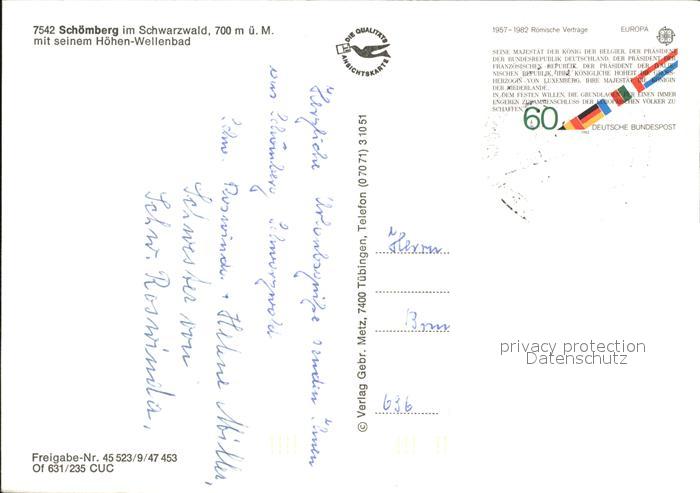 7542 Schömberg im Schwarzwald, 700 m ü. M.
mit seinem Höhen-Wellenbad
DIE QUALITÄTS
ANSICHTSKARTE
1957-1982 Römische Verträge
EUROPA
SEINE MAJESTÄT DER KÖNIG DER BELGIER, DER PRÄSIDENT
DER BUNDESREPUBLIK DEUTSCHLAND, DER PRÄSIDENT DER
FRANZÖSISCHEN REPUBLIK, DER PRÄSIDENT DER ITALIE-
NISCHEN REPUBLIK, IHRE KÖNIGLICHE HOHEIT DIE GROSS-
HERZOGIN VON LUXEMBURG, IHRE MAJESTÄT DIE KÖNIGIN
DER NIEDERLANDE,
IN DEM FESTEN WILLEN, DIE GRUNDLAGEN FÜR EINEN IMMER
ENGEREN ZUSAMMENSCHLUSS DER EUROPÄISCHEN VÖLKER ZU
SCHAFFEN
60
DEUTSCHE BUNDESPOST
Herzliche Urlaubsgrüße senden Ihnen
aus Schömberg Schwarzwald
Schw. Roswinda + Helene Müller,
Schwester von
Schw. Roswinda.
© Verlag Gebr. Metz, 7400 Tübingen, Telefon (07071) 31051
Herrn
Bonn
696
privacy protection
Datenschutz
Freigabe-Nr. 45 523/9/47 453
Of 631/235 CUC